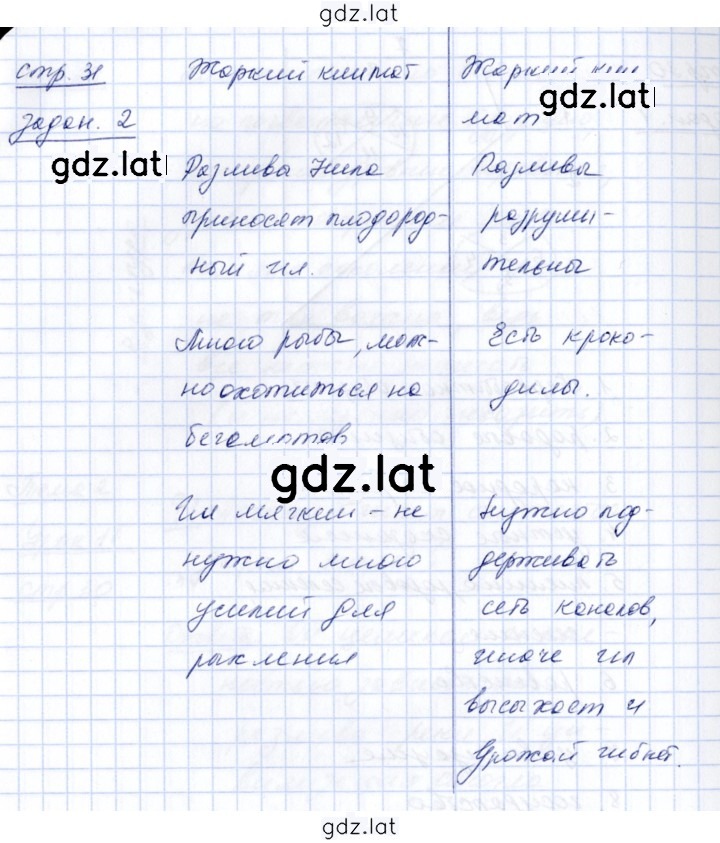 gdz.lat
стр. 31
задан. 2
gdz.lat
Жаркий климат
Разлива Нила
приносят плодород-
ный ил.
Много рыбы, мож-
но охотиться на
бегемотов
gdz.lat
Ил мягкий – не
нужно много
усилий для
рыхления
Жаркий кли
gdz.lat
мат
Разливы
разруши-
тельны
Есть кроко-
дилы.
Нужно под-
держивать
сеть каналов,
иначе ил
высыхает и
Урожай гибнет.
gdz.lat